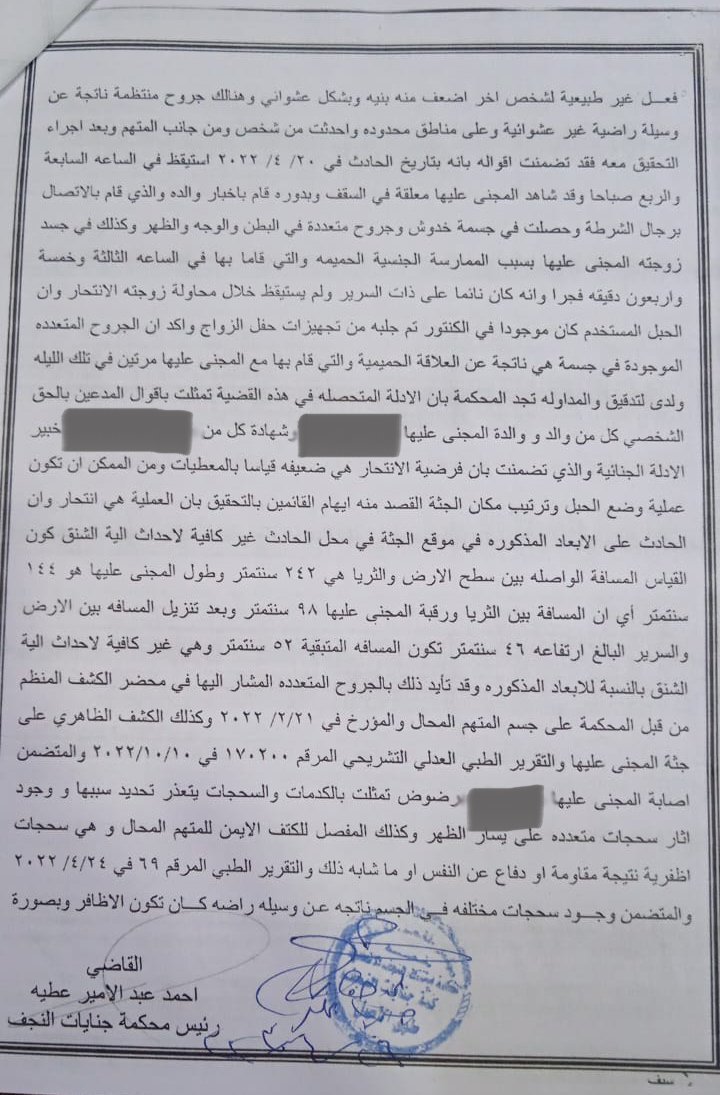 فعل غير طبيعية لشخص اخر اضعف منه بنيه وبشكل عشواني وهنالك جروح منتظمة ناتجة عن
وسيلة راضية غير عشوانية وعلى مناطق محدوده واحدثت من شخص ومن جانب المتهم وبعد اجراء
التحقيق معه فقد تضمنت اقواله بانه بتاريخ الحادث في ٢٠ /٤ /٢٠٢٢ استيقظ في الساعه السابعة
والربع صباحا وقد شاهد المجنى عليها معلقة في السقف وبدوره قام باخبار والده والذي قام بالاتصال
برجال الشرطة وحصلت في جسمة خدوش وجروح متعددة في البطن والوجه والظهر وكذلك في جسد
زوجته المجنى عليها بسبب الممارسة الجنسية الحميمه والتي قاما بها في الساعه الثالثة وخمسة
واربعون دقيقه فجرا وانه كان نائما على ذات السرير ولم يستيقظ خلال محاولة زوجته الانتحار وان
الحبل المستخدم كان موجودا في الكنتور تم جلبه من تجهيزات حفل الزواج واكد ان الجروح المتعدده
الموجودة في جسمة هي ناتجة عن العلاقة الحميمية والتي قام بها مع المجنى عليها مرتين في تلك الليله
ولدى لتدقيق والمداوله تجد المحكمة بان الادلة المتحصله في هذه القضية تمثلت باقوال المدعين بالحق
الشخصي كل من والد و والدة المجنى عليها وشهادة كل من خبير
الادلة الجنائية والذي تضمنت بان فرضية الانتحار هي ضعيفه قياسا بالمعطيات ومن الممكن ان تكون
عملية وضع الحبل وترتيب مكان الجثة القصد منه ايهام القائمين بالتحقيق بان العملية هي انتحار وان
الحادث على الابعاد المذكوره في موقع الجثة في محل الحادث غير كافية لاحداث الية الشنق كون
القياس المسافة الواصله بين سطح الارض والثريا هي ٢٤٢ سنتمتر وطول المجنى عليها هو ١٤٤
سنتمتر أي ان المسافة بين الثريا ورقبة المجنى عليها ٩٨ سنتمتر وبعد تنزيل المسافه بين الارض
والسرير البالغ ارتفاعه ٤٦ سنتمتر تكون المسافه المتبقية ٥٢ سنتمتر وهي غير كافية لاحداث الية
الشنق بالنسبة للابعاد المذكوره وقد تأيد ذلك بالجروح المتعدده المشار اليها في محضر الكشف المنظم
من قبل المحكمة على جسم المتهم المحال والمؤرخ في ٢٠٢٢ /٢/٢١ وكذلك الكشف الظاهري على
جثة المجنى عليها والتقرير الطبي العدلي التشريحي المرقم ١٧٠٢٠٠ في ٢٠٢٢/١٠/١٠ والمتضمن
اصابة المجنى عليها رضوض تمثلت بالكدمات والسحجات يتعذر تحديد سببها و وجود
اثار سحجات متعدده على يسار الظهر وكذلك المفصل للكتف الايمن للمتهم المحال و هي سحجات
اظفرية نتيجة مقاومة او دفاع عن النفس او ما شابه ذلك والتقرير الطبي المرقم ٦٩ في ٢٠٢٢ /٤/٢٤
والمتضمن وجود سحجات مختلفه في الجسم ناتجه عن وسيله راضه كان تكون الاظافر وبصورة
القاضي
احمد عبد الامير عطيه
رئيس محكمة جنايات النجف
سف